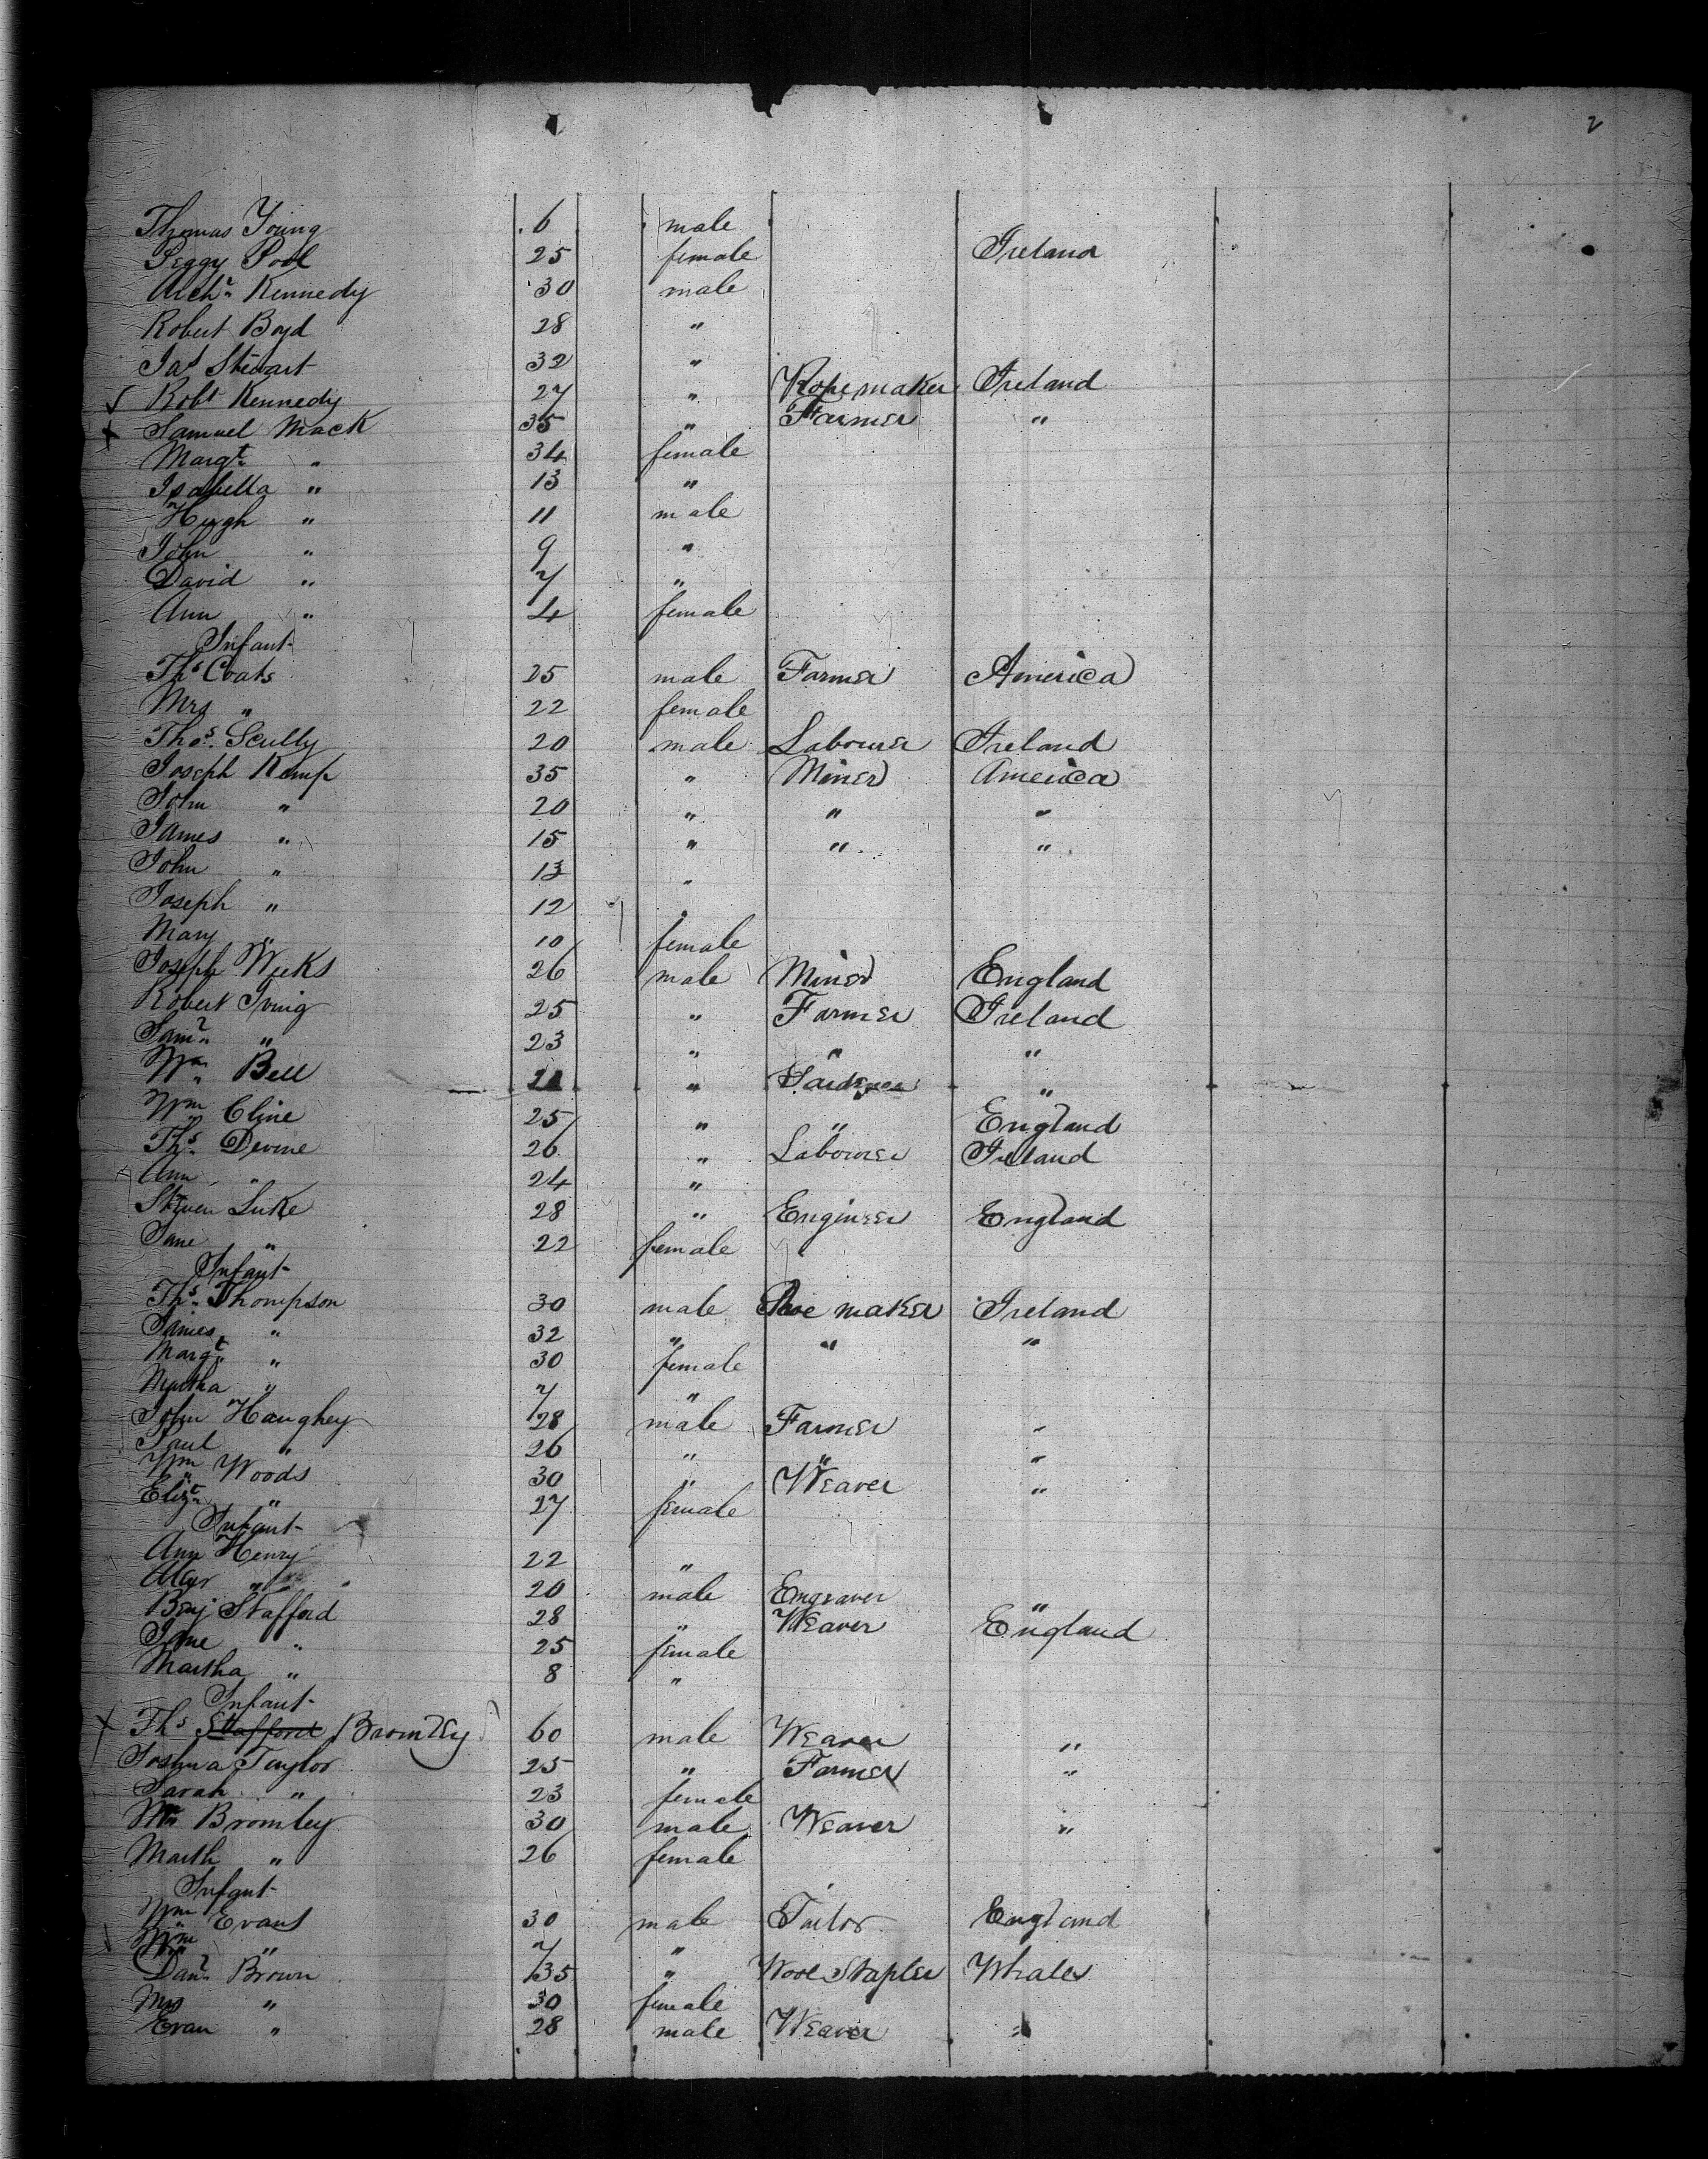 2
Thomas Young 6 male
Peggy Pool 25 female Ireland
Archd Kennedy 30 male
Robert Boyd 28 "
Jas Stewart 32 "
Robt Kennedy 27 " Rope maker Ireland
Samuel Mack 35 " Farmer "
Margt " 34 female
Isabella " 13 "
Hugh " 11 male
John " 9 "
David " 7 "
Ann " 4 female
Infant
Ths Coats 25 male Farmer America
Mrs " 22 female
Thos. Scully 20 male Labourer Ireland
Joseph Kemp 35 " Miner America
John " 20 " " "
James " 15 " " "
John " 13 "
Joseph " 12 "
Mary " 10 female
Joseph Weeks 26 male Miner England
Robert Irving 25 " Farmer Ireland
Saml " 23 " " "
Wm Bell " Gardener "
Wm Cline 25 " " England
Ths Devine 26 " Labourer Ireland
Ann " 24 "
Steven Luke 28 " Engineer England
Jane " 22 female
Infant
Ths Thompson 30 male Shoe maker Ireland
James " 32 " " "
Margt " 30 female
Martha " 7 "
John Haughey 28 male Farmer "
Paul " 26 " " "
Wm Woods 30 " Weaver "
Elizt " 27 female
Infant
Ann Henry 22 "
Alexr " 20 male Engraver "
Benj Stafford 28 " Weaver England
Jane " 25 female
Martha " 8 "
Infant
Ths Stafford Bromley 60 male Weaver "
Joshua Taylor 25 " Farmer "
Sarah " 23 female
Wm Bromley 30 male Weaver "
Marth " 26 female
Infant
Wm Evans 30 male Tailor England
Wm " 7 "
Danl Brown 35 " Wool Stapler Whales
Mrs " 30 female
Evan " 28 male Weaver "